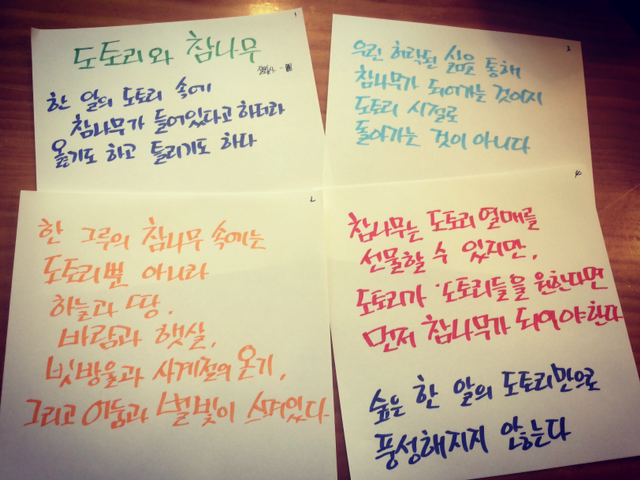 1
도토리와 참나무
한 알의 도토리 속에
참나무가 들어있다고 하더라
옳기도 하고 틀리기도 하다
2
한 그루의 참나무 속에는
도토리뿐 아니라
하늘과 땅,
바람과 햇살,
빗방울과 사계절의 온기,
그리고 어둠과 별빛이 스며있다
3
우린 허락된 삶을 통해
참나무가 되어가는 것이지
도토리 시절로
돌아가는 것이 아니다
4
참나무는 도토리 열매를
선물할 수 있지만,
도토리가 도토리들을 원한다면
먼저 참나무가 되어야한다
숲은 한 알의 도토리만으로
풍성해지지 않는다